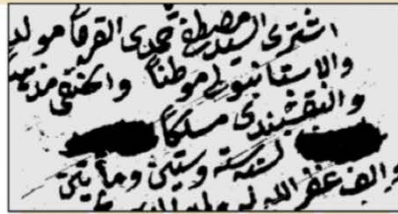 اشترى السيد مصطفى حمدى القرقآ مولدا
والاستانبولى موطنا والحنفى مذهبا
والنقشبندى مسلكا
لسنة ستة وستين ومأيتين
والف غفر الله له